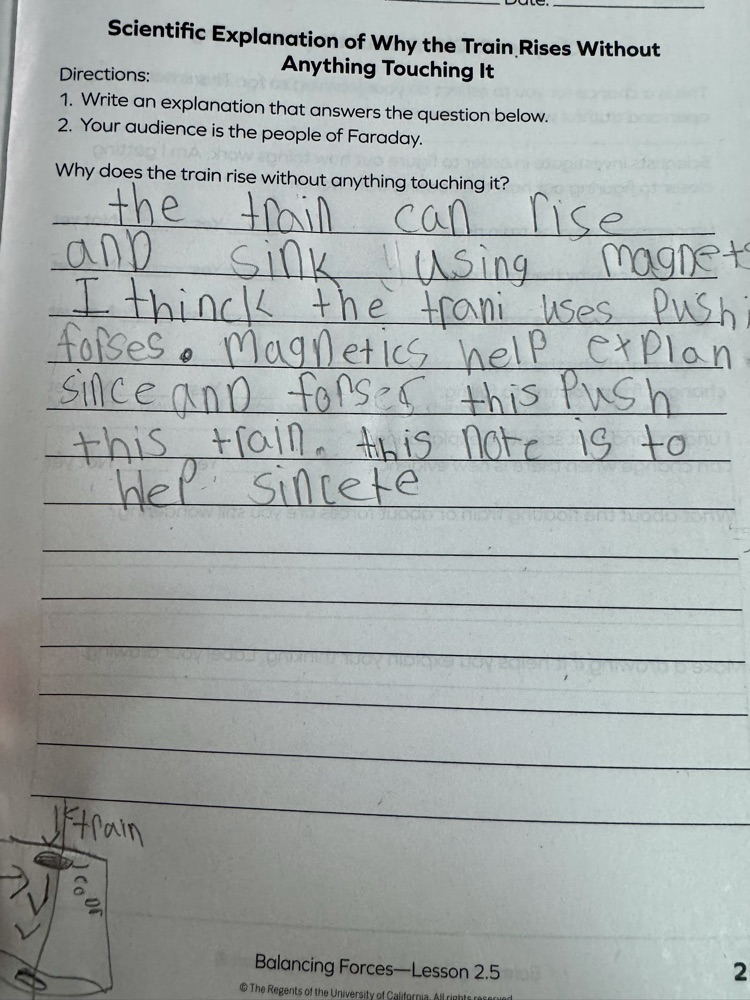 Date:
Scientific Explanation of Why the Train Rises Without
Anything Touching It
Directions:
1. Write an explanation that answers the question below.
2. Your audience is the people of Faraday.
Why does the train rise without anything touching it?
the train can rise
and sink using magnets
I thinck the trani uses Pushi
forses. magnetics help explan
since and forses this Push
this train. this note is to
help sincete
train
Balancing Forces—Lesson 2.5
2
© The Regents of the University of California. All rights reserved